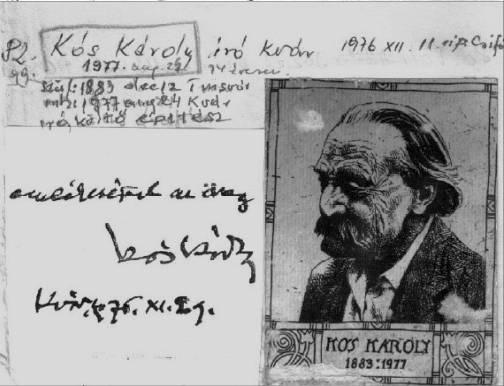 82. Kós Károly író Kvár 1976 XII. 11.
99. 1977. aug. 24
szül: 1883 dec 12 Tmsvár
mh: 1977 aug 24 Kvár
író, költő építész
emlékezésül az öreg
Kós Károly
Kvár, 976. XI. 29.
KÓS KÁROLY
1883-1977